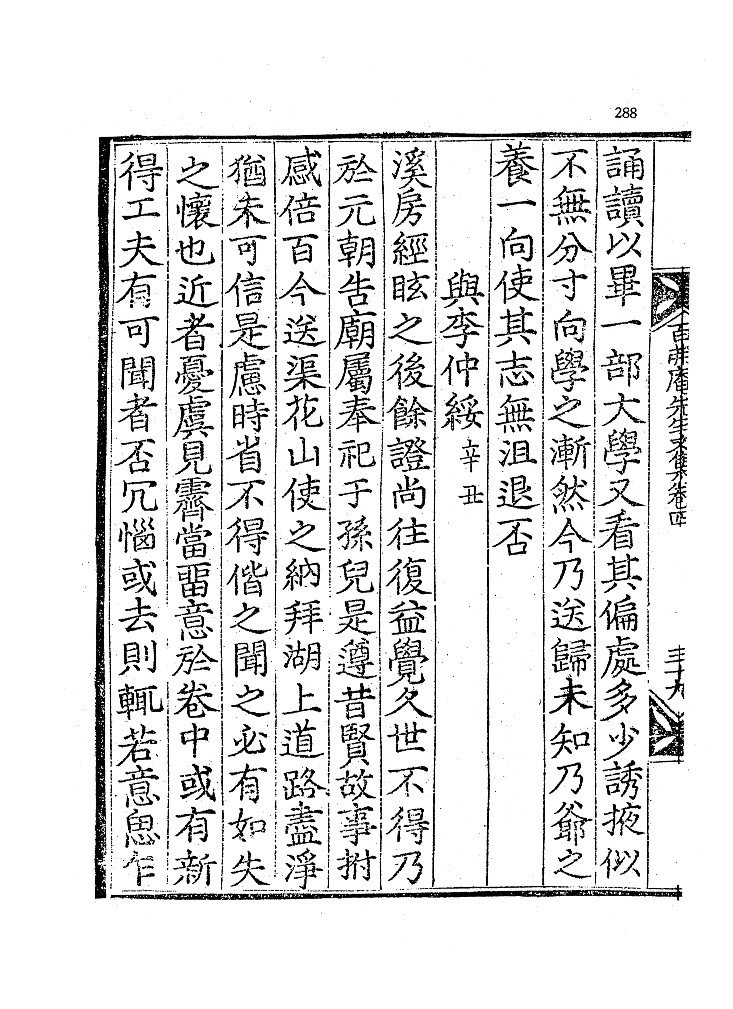 288
百弗庵先生文集卷四
三十九
誦讀以畢一部大學又看其偏處多少誘掖似
不無分寸向學之漸然今乃送歸未知乃爺之
養一向使其志無沮退否
與李仲綏 辛丑
溪房經眩之後餘證尚往復益覺久世不得乃
於元朝告廟屬奉祀于孫兒是遵昔賢故事拊
感倍百今送渠花山使之納拜湖上道路盡淨
猶未可信是慮時省不得偕之聞之必有如失
之懷也近者憂虞見霽當畱意於卷中或有新
得工夫有可聞者否冗惱或去則輒若意思乍